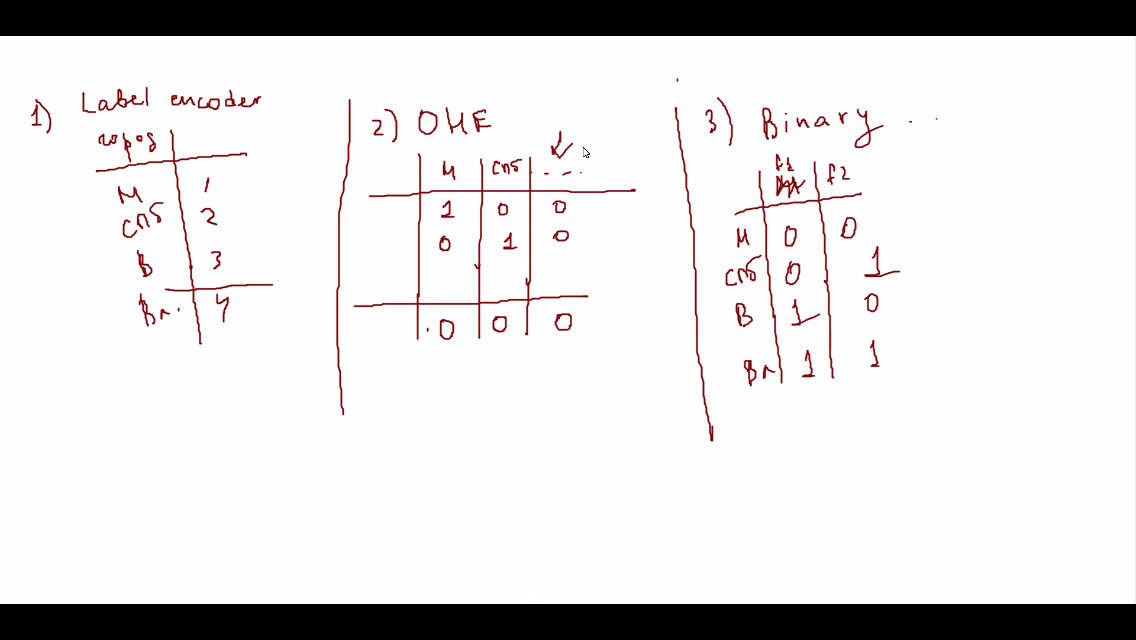 1) Label encoder
город
М 1
СПб 2
В 3
Вл. 4
2) OHE
М СПб ...
1 0 0
0 1 0
0 0 0
3) Binary ...
f1 f2
М 0 0
СПб 0 1
В 1 0
Вл 1 1